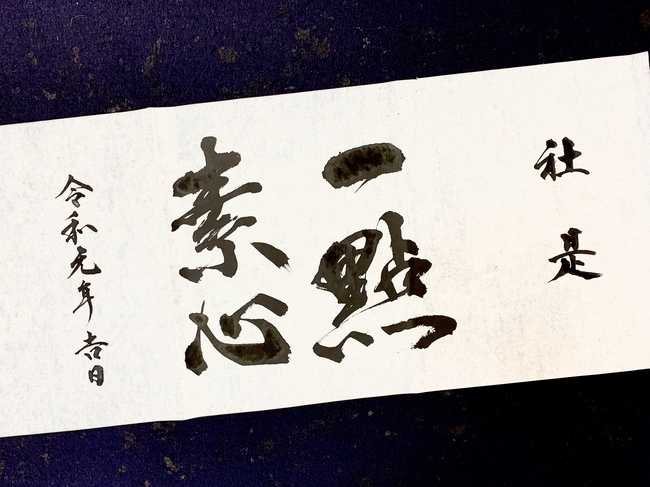 社是
一點
素心
令和元年吉日